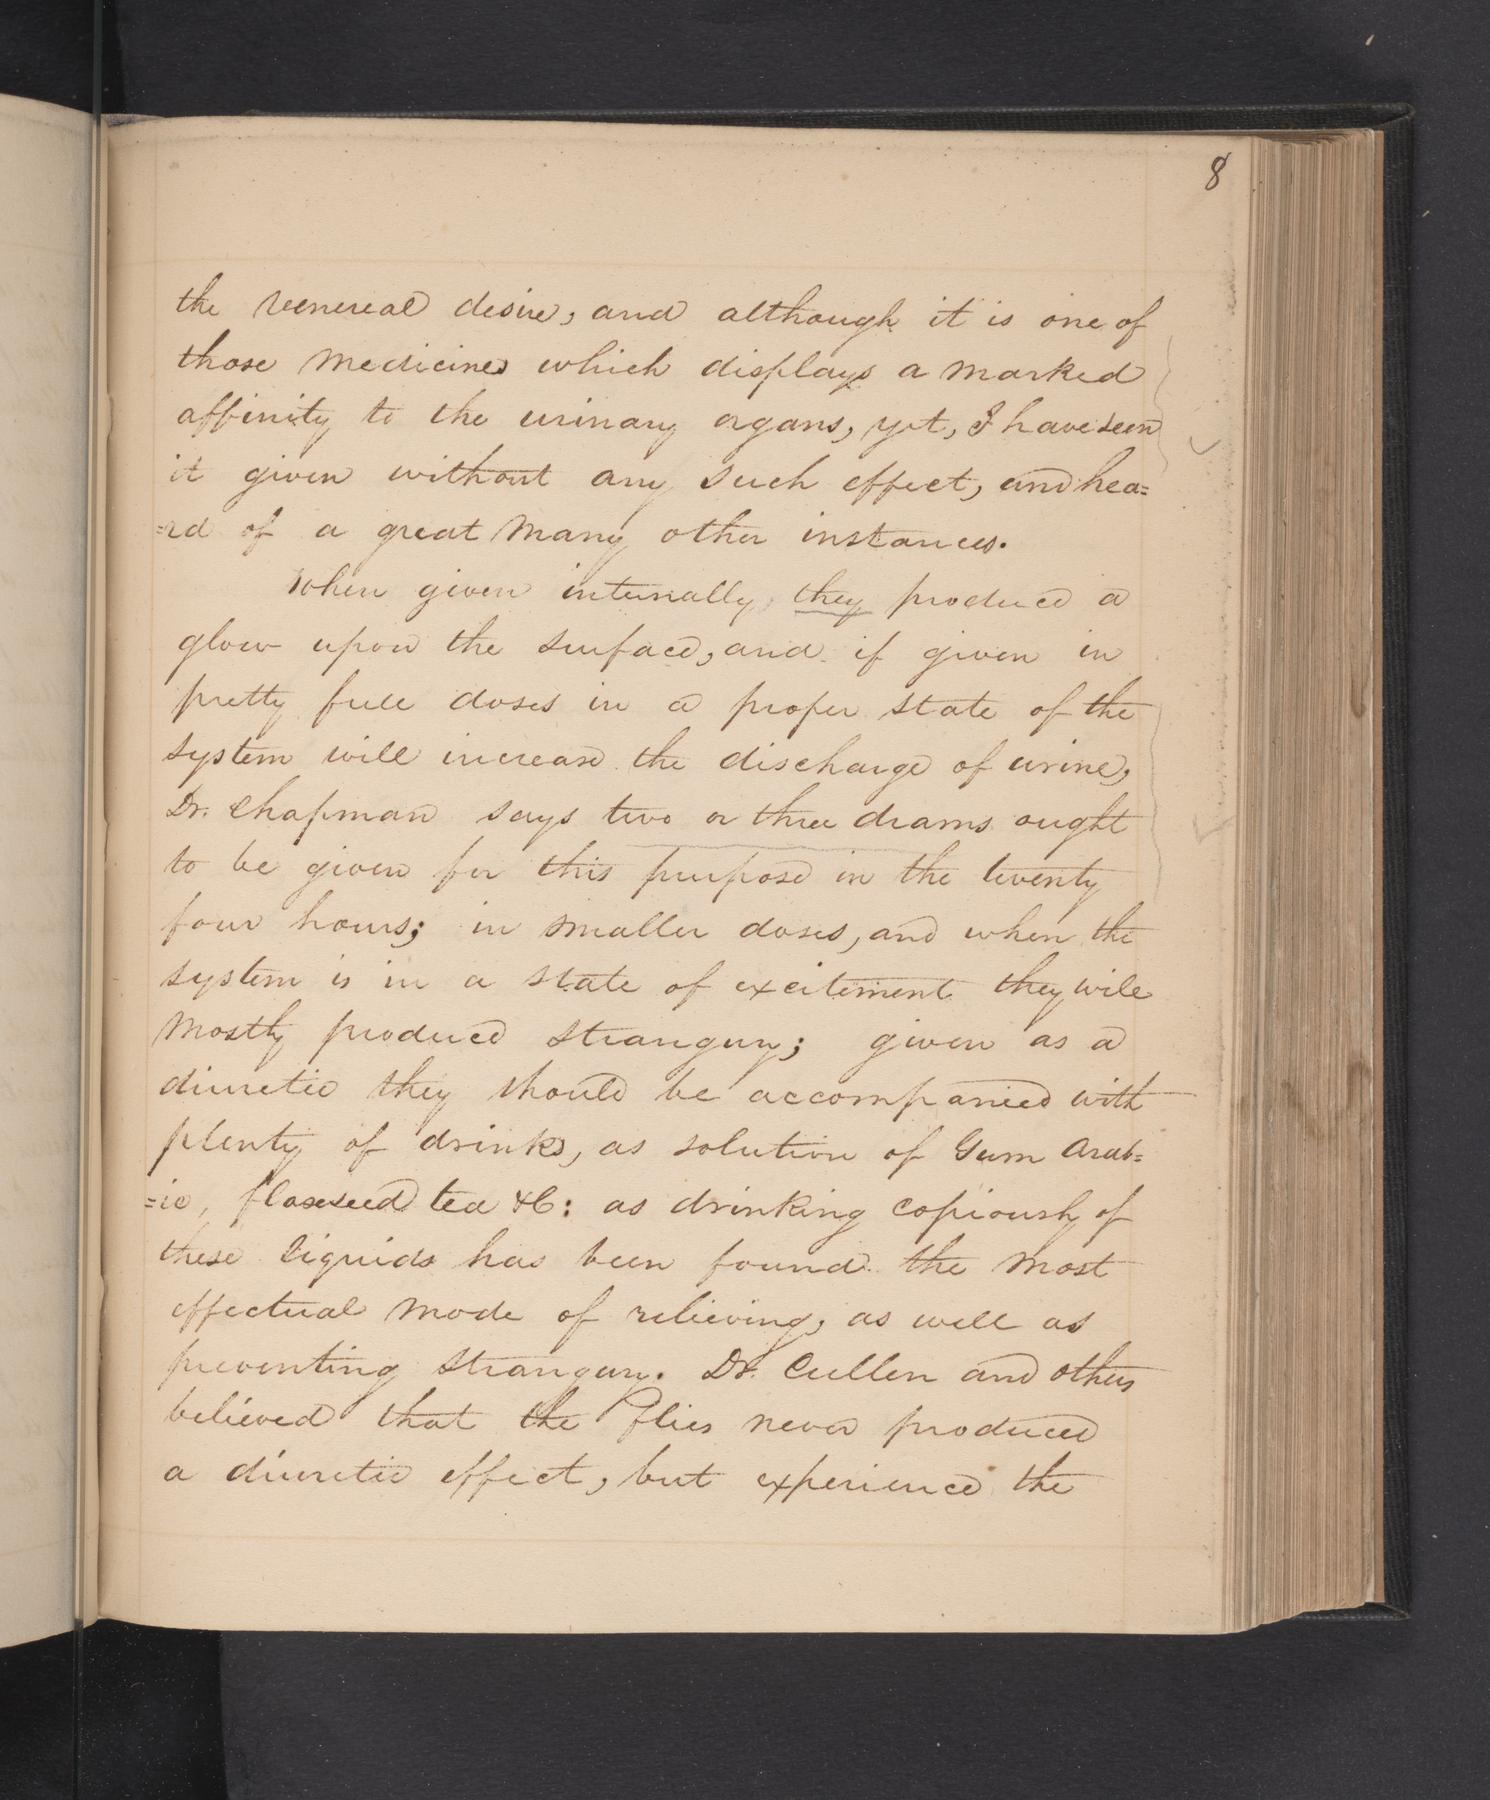 8
the venereal desire, and although it is one of
those medicines which displays a marked
affinity to the urinary organs, yet, I have seen
it given without any such effect, and hea=
=rd of a great many other instances.
When given internally, they produce a
glow upon the surface, and if given in
pretty full doses in a proper state of the
system will increase the discharge of urine,
Dr. Chapman says two or three drams ought
to be given for this purpose in the twenty
four hours; in smaller doses, and when the
system is in a state of excitement they will
mostly produce strangury; given as a
diuretic they should be accompanied with
plenty of drinks, as solution of Gum Arab=
=ic, flaxseed tea &C: as drinking copiously of
these liquids has been found the most
effectual mode of relieving, as well as
preventing strangury. Dr. Cullen and others
believed that the flies never produced
a diuretic effect, but experience the